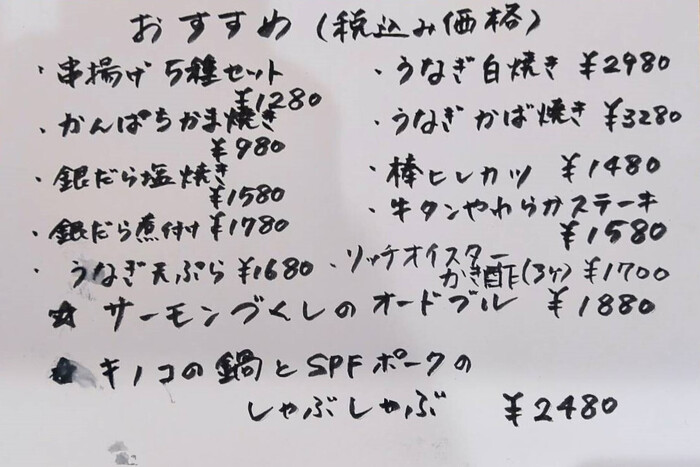 おすすめ(税込み価格)
・串揚げ5種セット
¥1280
・かんぱちかま焼き
¥980
・銀だら塩焼き
¥1580
・銀だら煮付け ¥1780
・うなぎ天ぷら ¥1680
・うなぎ白焼き ¥2980
・うなぎかば焼き ¥3280
・棒ヒレカツ ¥1480
・牛タンやわらかステーキ
¥1580
・リッチオイスター
かき酢(3ケ) ¥1700
☆ サーモンづくしのオードブル ¥1880
★ キノコの鍋とSPFポークの
しゃぶしゃぶ ¥2480